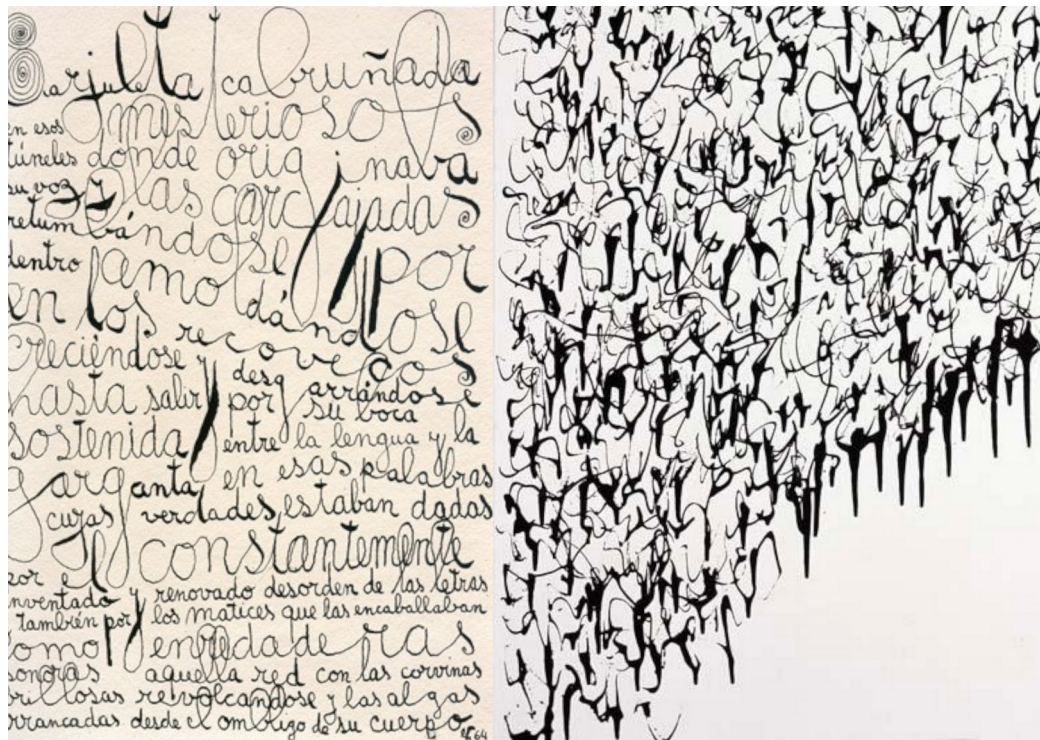 Barjuleta cabruñada
misteriosos
en esos
túneles donde originava
su voz y las carcajadas
retumbándose por
dentro amoldándose
en los recovecos
creciéndose y desgarrándose
hasta salir por su boca
sostenida entre la lengua y la
garganta en esas palabras
cuyas verdades estaban dadas
constantemente
por el
inventado y renovado desorden de las letras
también por los matices que las encaballaban
como enredaderas
sonoras aquella red con las corvinas
brillosas revolcandose y las algas
arrancadas desde el ombligo de su cuerpo
64